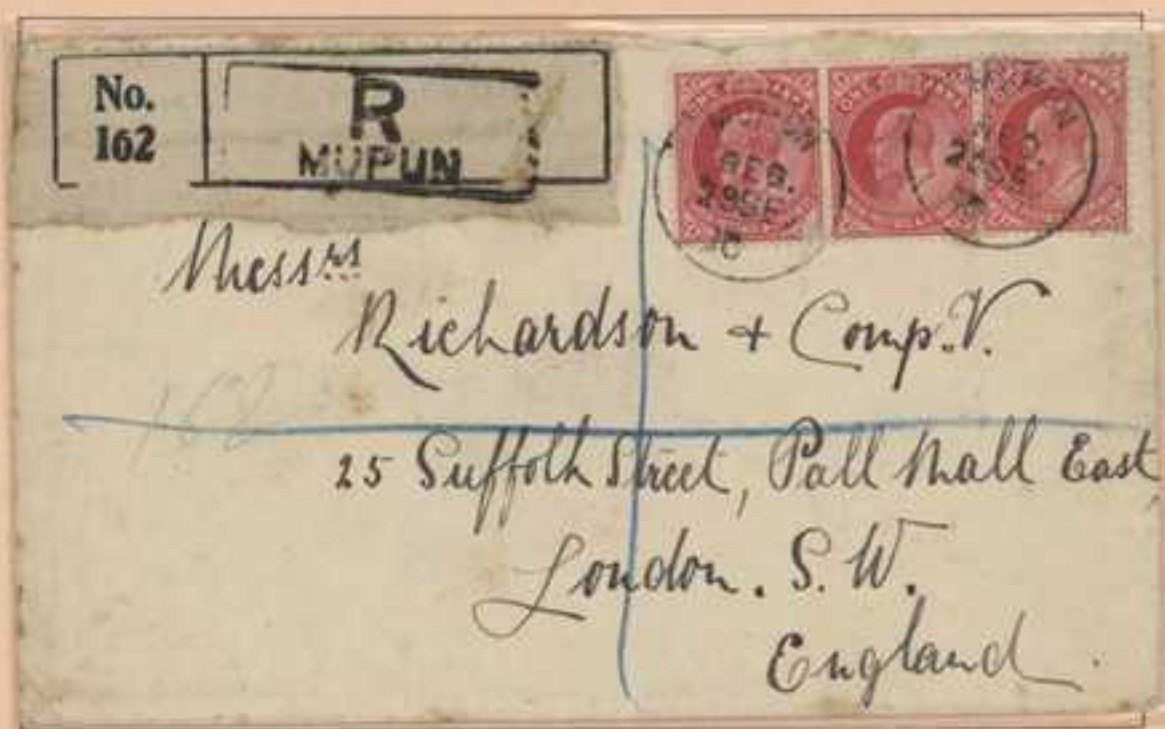 No.
162
R
MUPUN
REG.
29 SE
10
Messrs
Richardson + Comp.y.
25 Suffolk Street, Pall Mall East
London. S. W.
England.
162